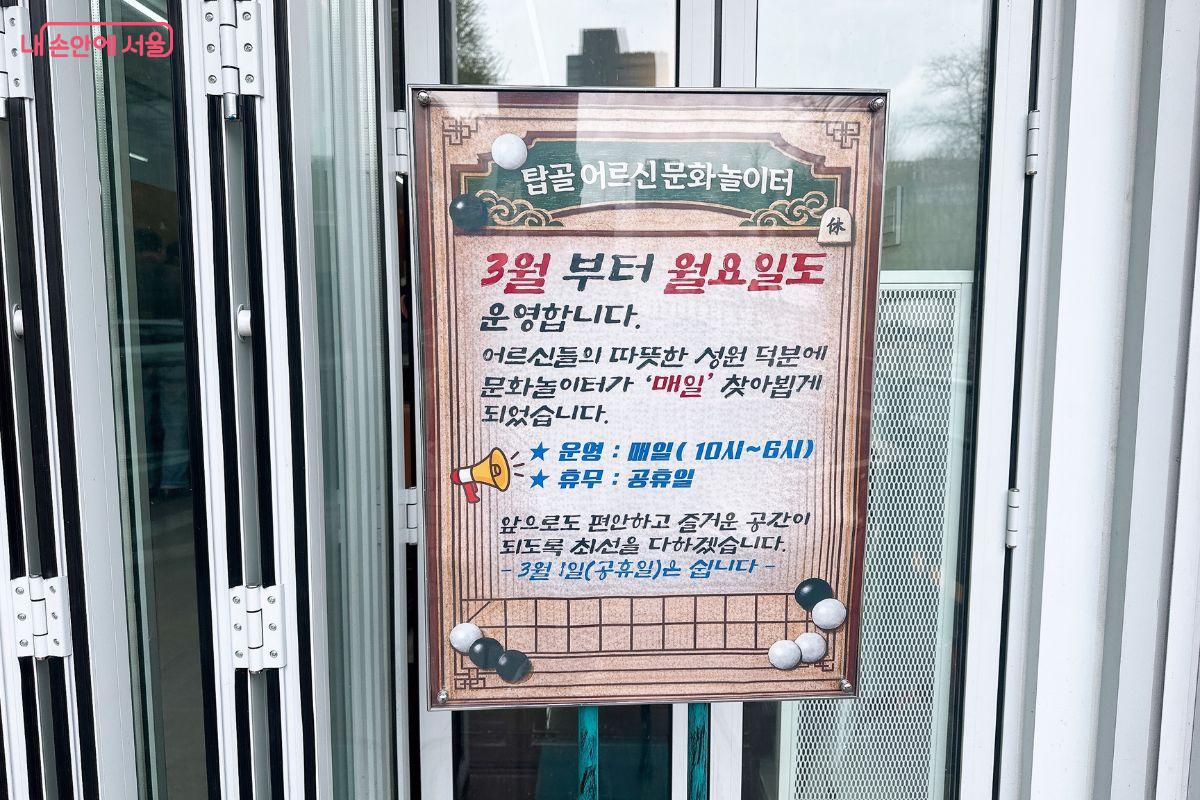 내 손안에 서울
탑골 어르신 문화 놀이터
休
3월 부터 월요일도
운영합니다.
어르신들의 따뜻한 성원 덕분에
문화놀이터가 ‘매일’ 찾아뵙게
되었습니다.
★ 운영 : 매일( 10시~6시)
★ 휴무 : 공휴일
앞으로도 편안하고 즐거운 공간이
되도록 최선을 다하겠습니다.
- 3월 1일(공휴일)은 쉽니다 -